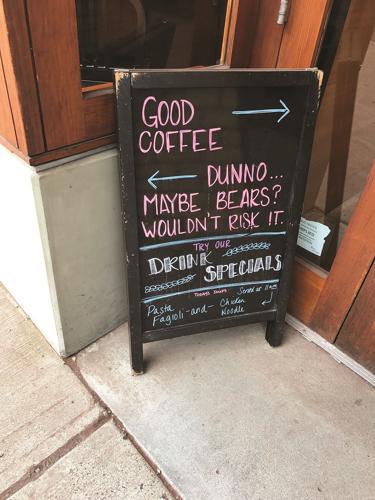 GOOD
COFFEE
DUNNO...
MAYBE BEARS?
WOULDN'T RISK IT.
TRY OUR
DRINK SPECIALS
TODAYS SOUPS Served at 11am
Pasta Chicken
Fagioli -and- Noodle